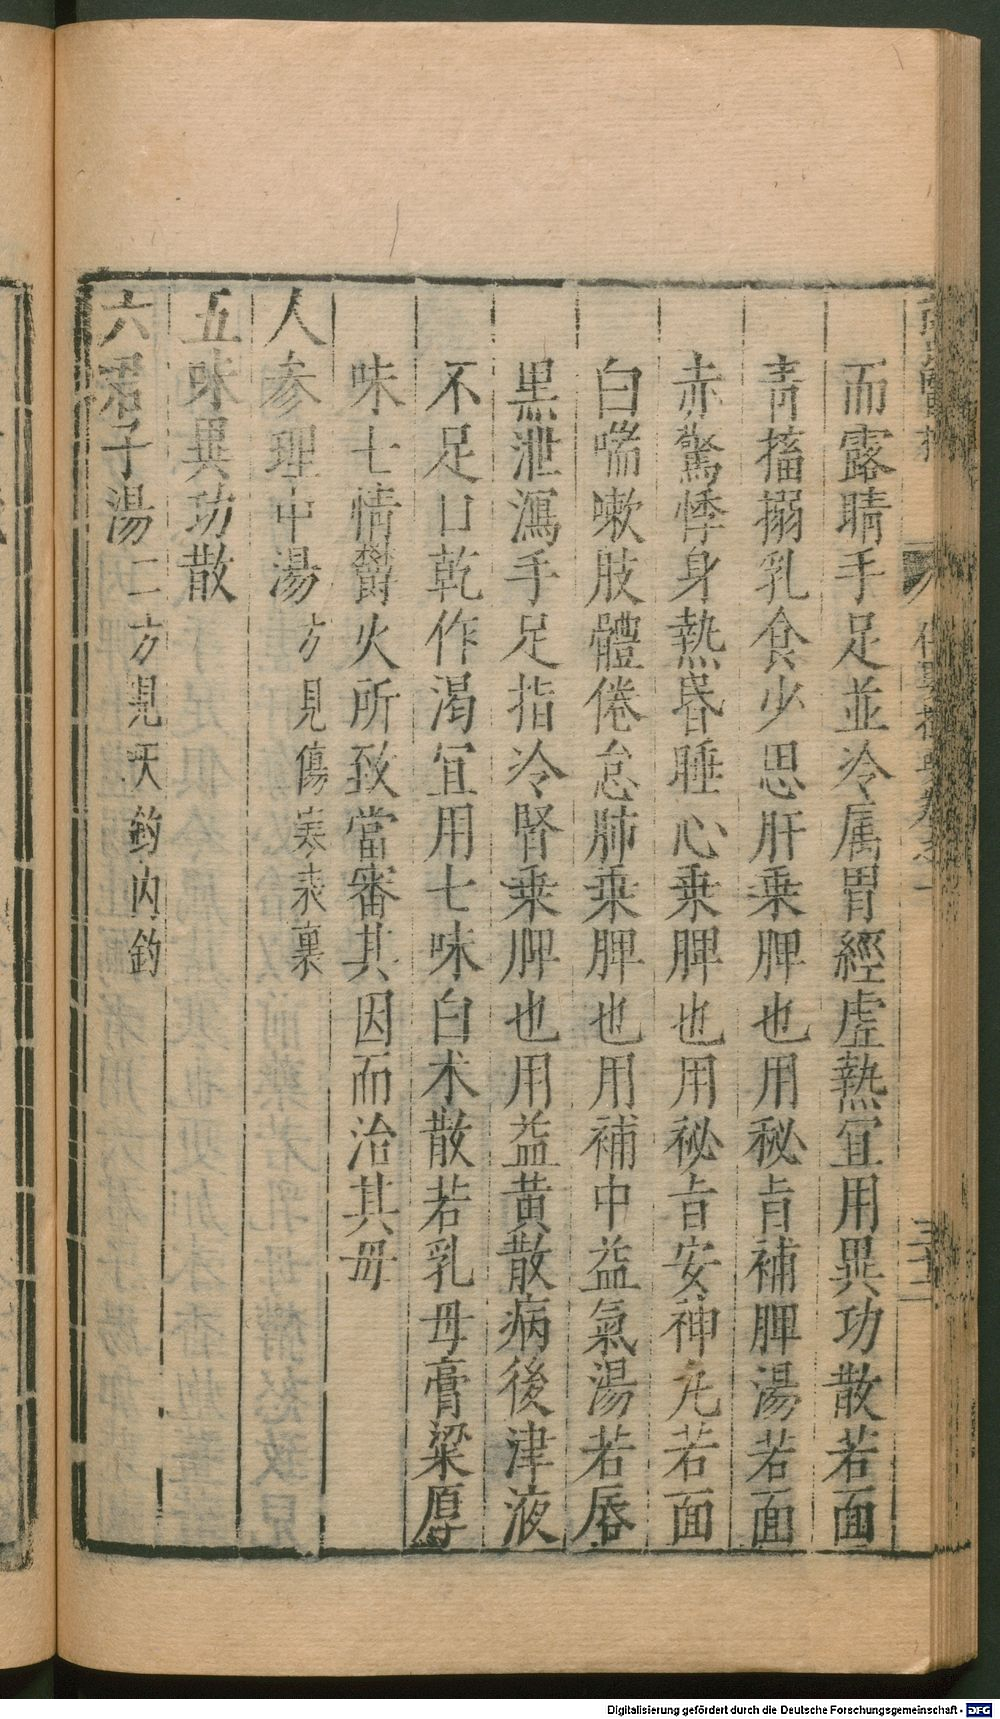 而露睛手足並冷属胃經虛熱冝用異功散若面
青搐搦乳食少思肝乗脾也用秘㫖補脾湯若面
赤驚悸身熱昏睡心乗脾也用秘㫖安神丸若面
白喘嗽肢體倦怠肺乗脾也用補中益氣湯若唇
黒泄瀉手足指冷腎乗脾也用益黄散病後津液
不足口乾作渴冝用七味白术散若乳母膏粱厚
味七情鬱火所致當審其因而治其母
人参理中湯方見傷寒表裏
五味異功散
六君子湯二方見天釣内釣
Digitalisierung gefördert durch die Deutsche Forschungsgemeinschaft - DFG